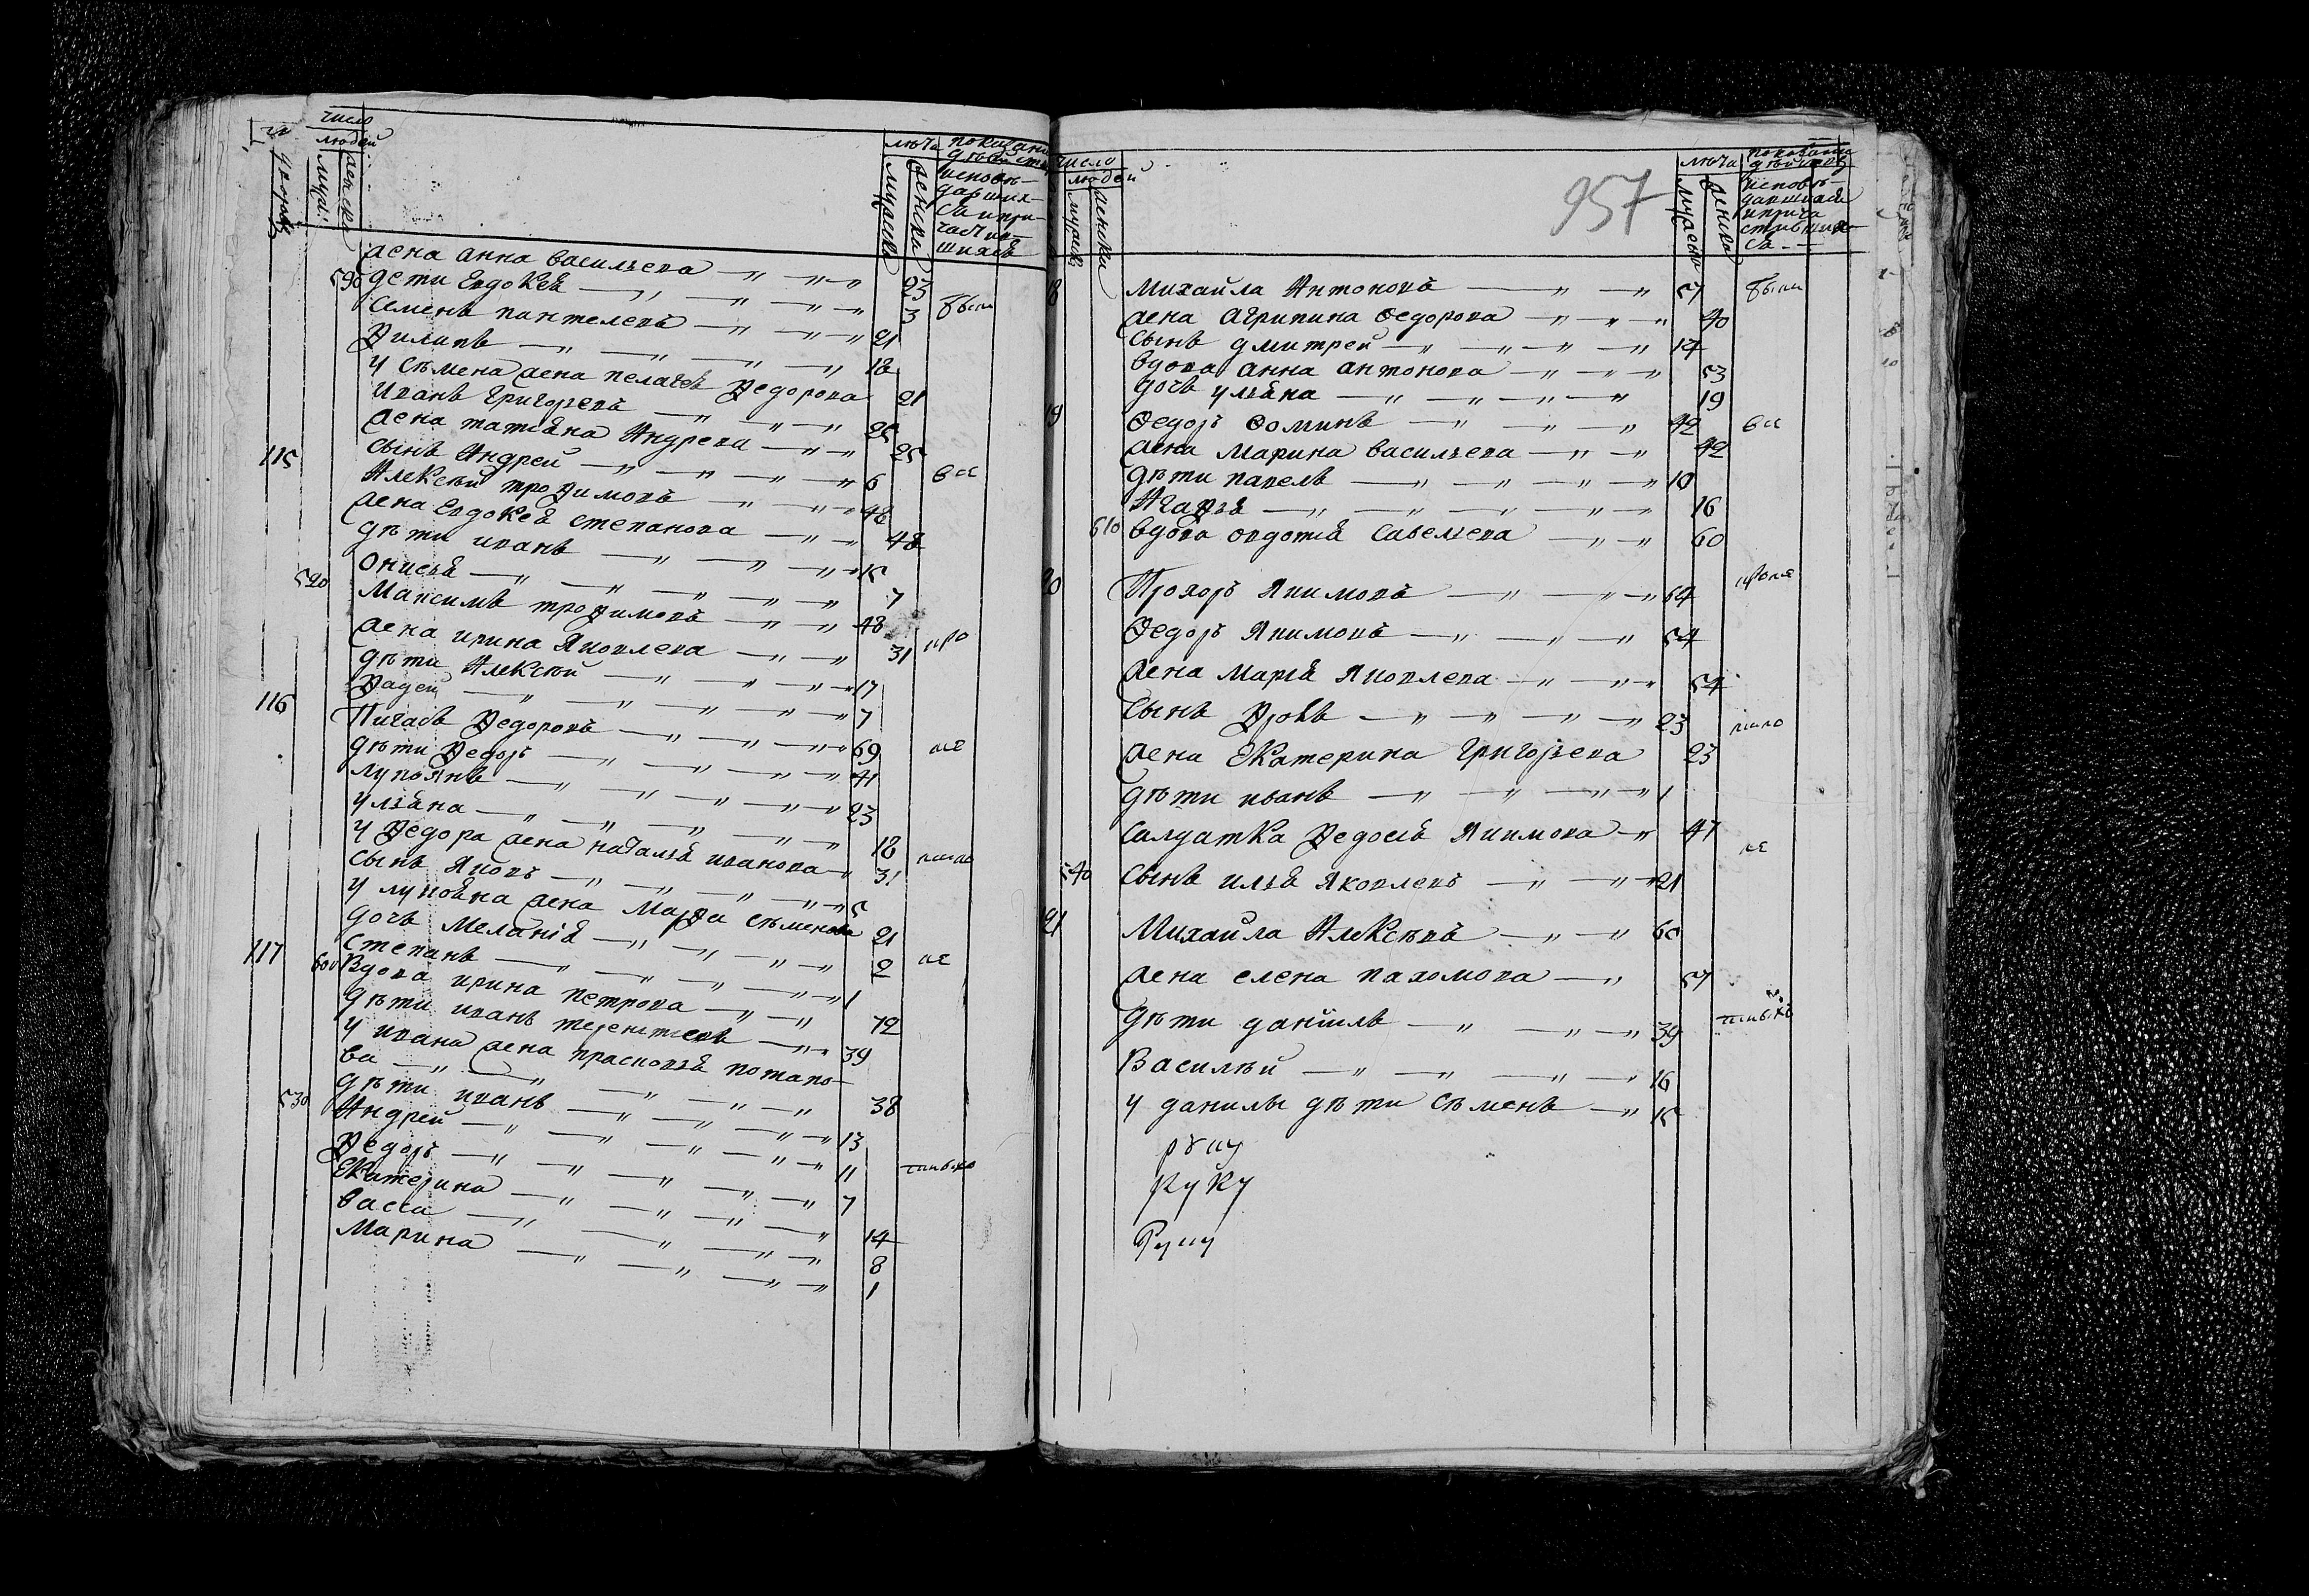 число
людей
дворов
муж:
женска
лѣта
мужска
женска
показани
дѣйств
исповѣ–
давших–
ся и при–
частив–
шихся
жена анна васильева 23
590 дети Евдокея 3 были
Семенъ пантелевъ 21
Филипъ 18
у Семена жена пелагея Федорова 21
Иванъ Григорьевъ 25
жена татьяна Андрева 25
сынъ Андрей 6 все
115 Алексѣй трофимовъ 48
жена Евдокея степанова 48
дѣти иванъ 15
Онисья 7
520 Максимъ трофимовъ 48
жена ирина Яковлева 31
дѣти Алексѣй 17
Фадей 7
116 Пигасъ Федоровъ 69
дѣти Федоръ 41
лупоянъ 23
ульяна 18
у Федора жена наталья иванова 31
сынъ Яковъ 5
у лупояна жена Марфа Сѣменова 21
дочь Меланія 2
Степанъ 1
117 600 Вдова ирина петрова 72
дѣти иванъ терентьевъ 39
у ивана жена прасковья потапо–
ва 38
530 дѣти иванъ 13
Андрей 11
Федоръ 7
Екатерина 14
васса 8
Марина 1
957
число
людей
мужск
женски
лѣта
мужеска
женска
показани
дѣйство
исповѣ–
давшихся
и прича
стивших
ся
18 Михайла Антоновъ 57 были
жена Агрипина Федорова 40
сынъ дмитрей 14
вдова анна антонова 53
дочь ульяна 19
19 Федоръ Фоминъ 42 все
жена Марина васильева 42
дѣти павелъ 10
Агафья 16
610 вдова овдотья Савельева 60
20 Прохоръ Якимовъ 64
Федоръ Якимовъ 54
жена Марія Яковлева 54
Сынъ Фролъ 23
жена Екатерина Григорьева 23
дѣти иванъ 1
салдатка Федосья Якимова 47
540 Сынъ илья Яковлевъ 21
21 Михайла Алексѣвъ 60
жена елена пахомова 57
дѣти даниилъ 39
Василѣй 16
у данилы дѣти Сѣменъ 15
руку
руку
Руку